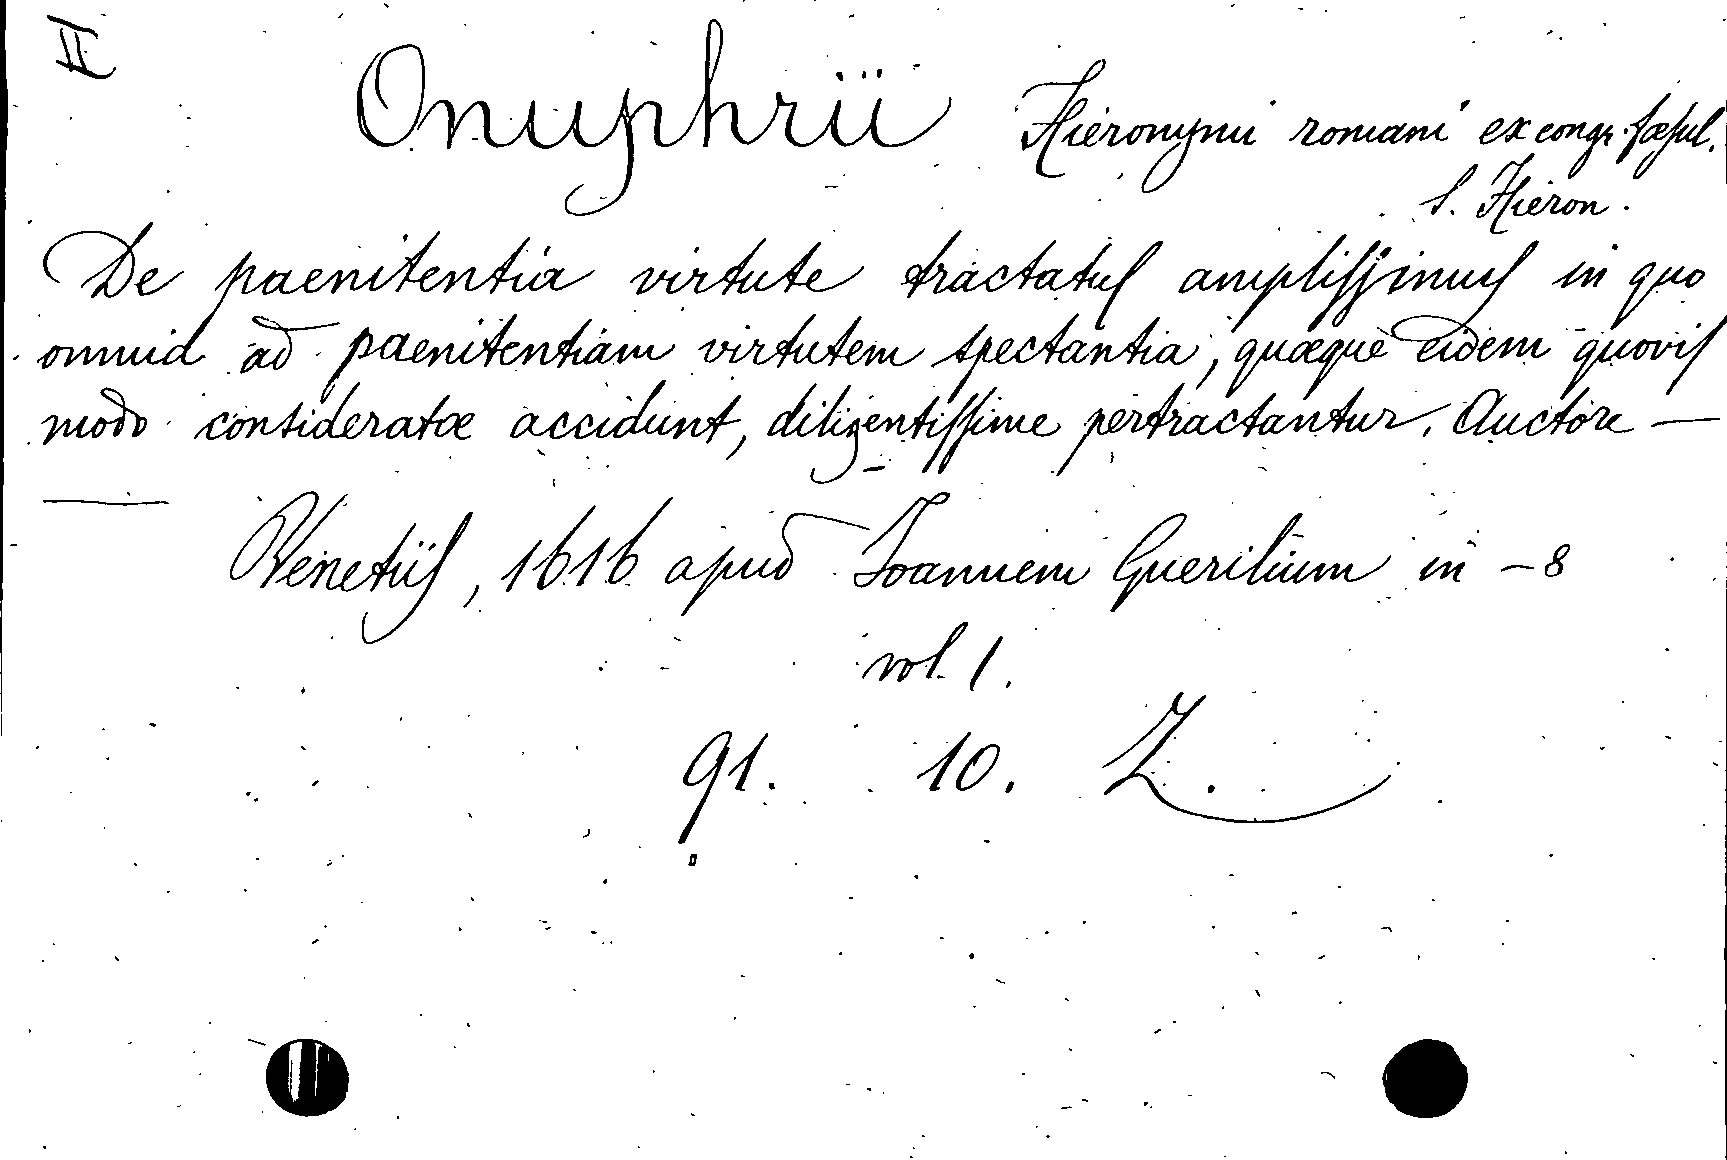 II
Onuphrii Hieronymi romani ex congr. fæsul.
S. Hieron.
De paenitentia virtute tractatus amplissimus in quo
omnia ad paenitentiam virtutem spectantia, quæque eidem quovis
modo consideratæ accidunt, diligentissime pertractantur. Auctore —
—
Venetiis, 1616 apud Ioannem Guerilium in -8
vol. 1.
91. 10. Z.